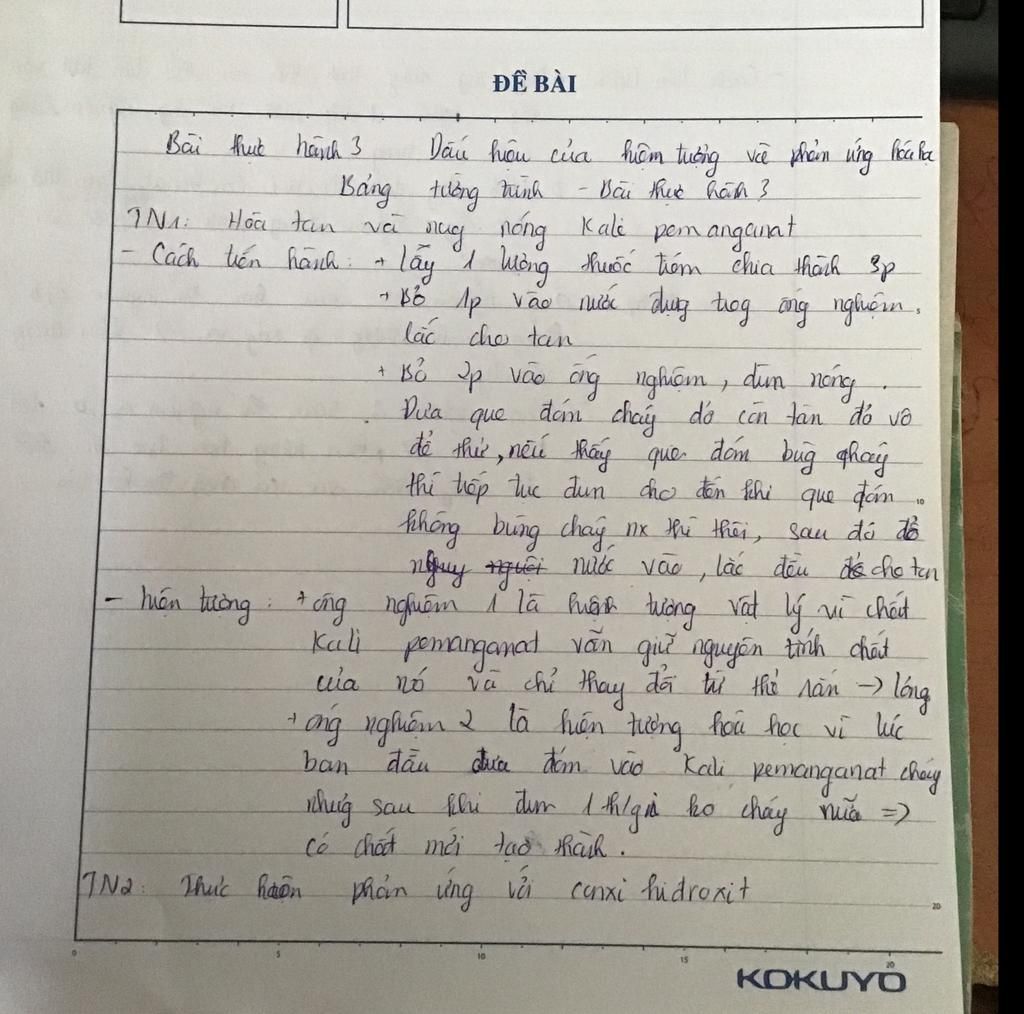 ĐỀ BÀI
Bài thực hành 3 Dấu hiệu của hiện tượng và phản ứng hóa học
Bảng tường trình - Bài thực hành 3
TN1: Hòa tan và nug nóng Kali pemanganat
- Cách tiến hành: + lấy 1 lượng thuốc tióm chia thành 3p
+ Bỏ 1p vào nước đựng trog ống nghiệm,
lắc cho tan
+ Bỏ 2p vào ống nghiệm, đun nóng.
Đưa que đóm cháy dở còn tàn đỏ vô
để thử, nếu thấy que đóm bùg cháy
thì tiếp tục đun cho đến khi que đóm 10
không bùng cháy nx thì thôi, sau đó đổ
nước vào, lắc đều cho tan
- hiện tượng: + ống nghiệm 1 là hiện tượng vật lý vì chất
Kali pemanganat vẫn giữ nguyên tính chất
của nó và chỉ thay đổi từ thể rắn -> lỏng
+ ống nghiệm 2 là hiện tượng hoá học vì lúc
ban đầu đưa đóm vào Kali pemanganat cháy
nhưg sau khi đun 1 th/gia ko cháy nữa =>
có chất mới tạo thành.
TN2: Thực hiện phản ứng với canxi hidroxit
20
0 5 10 15 20
KOKUYO